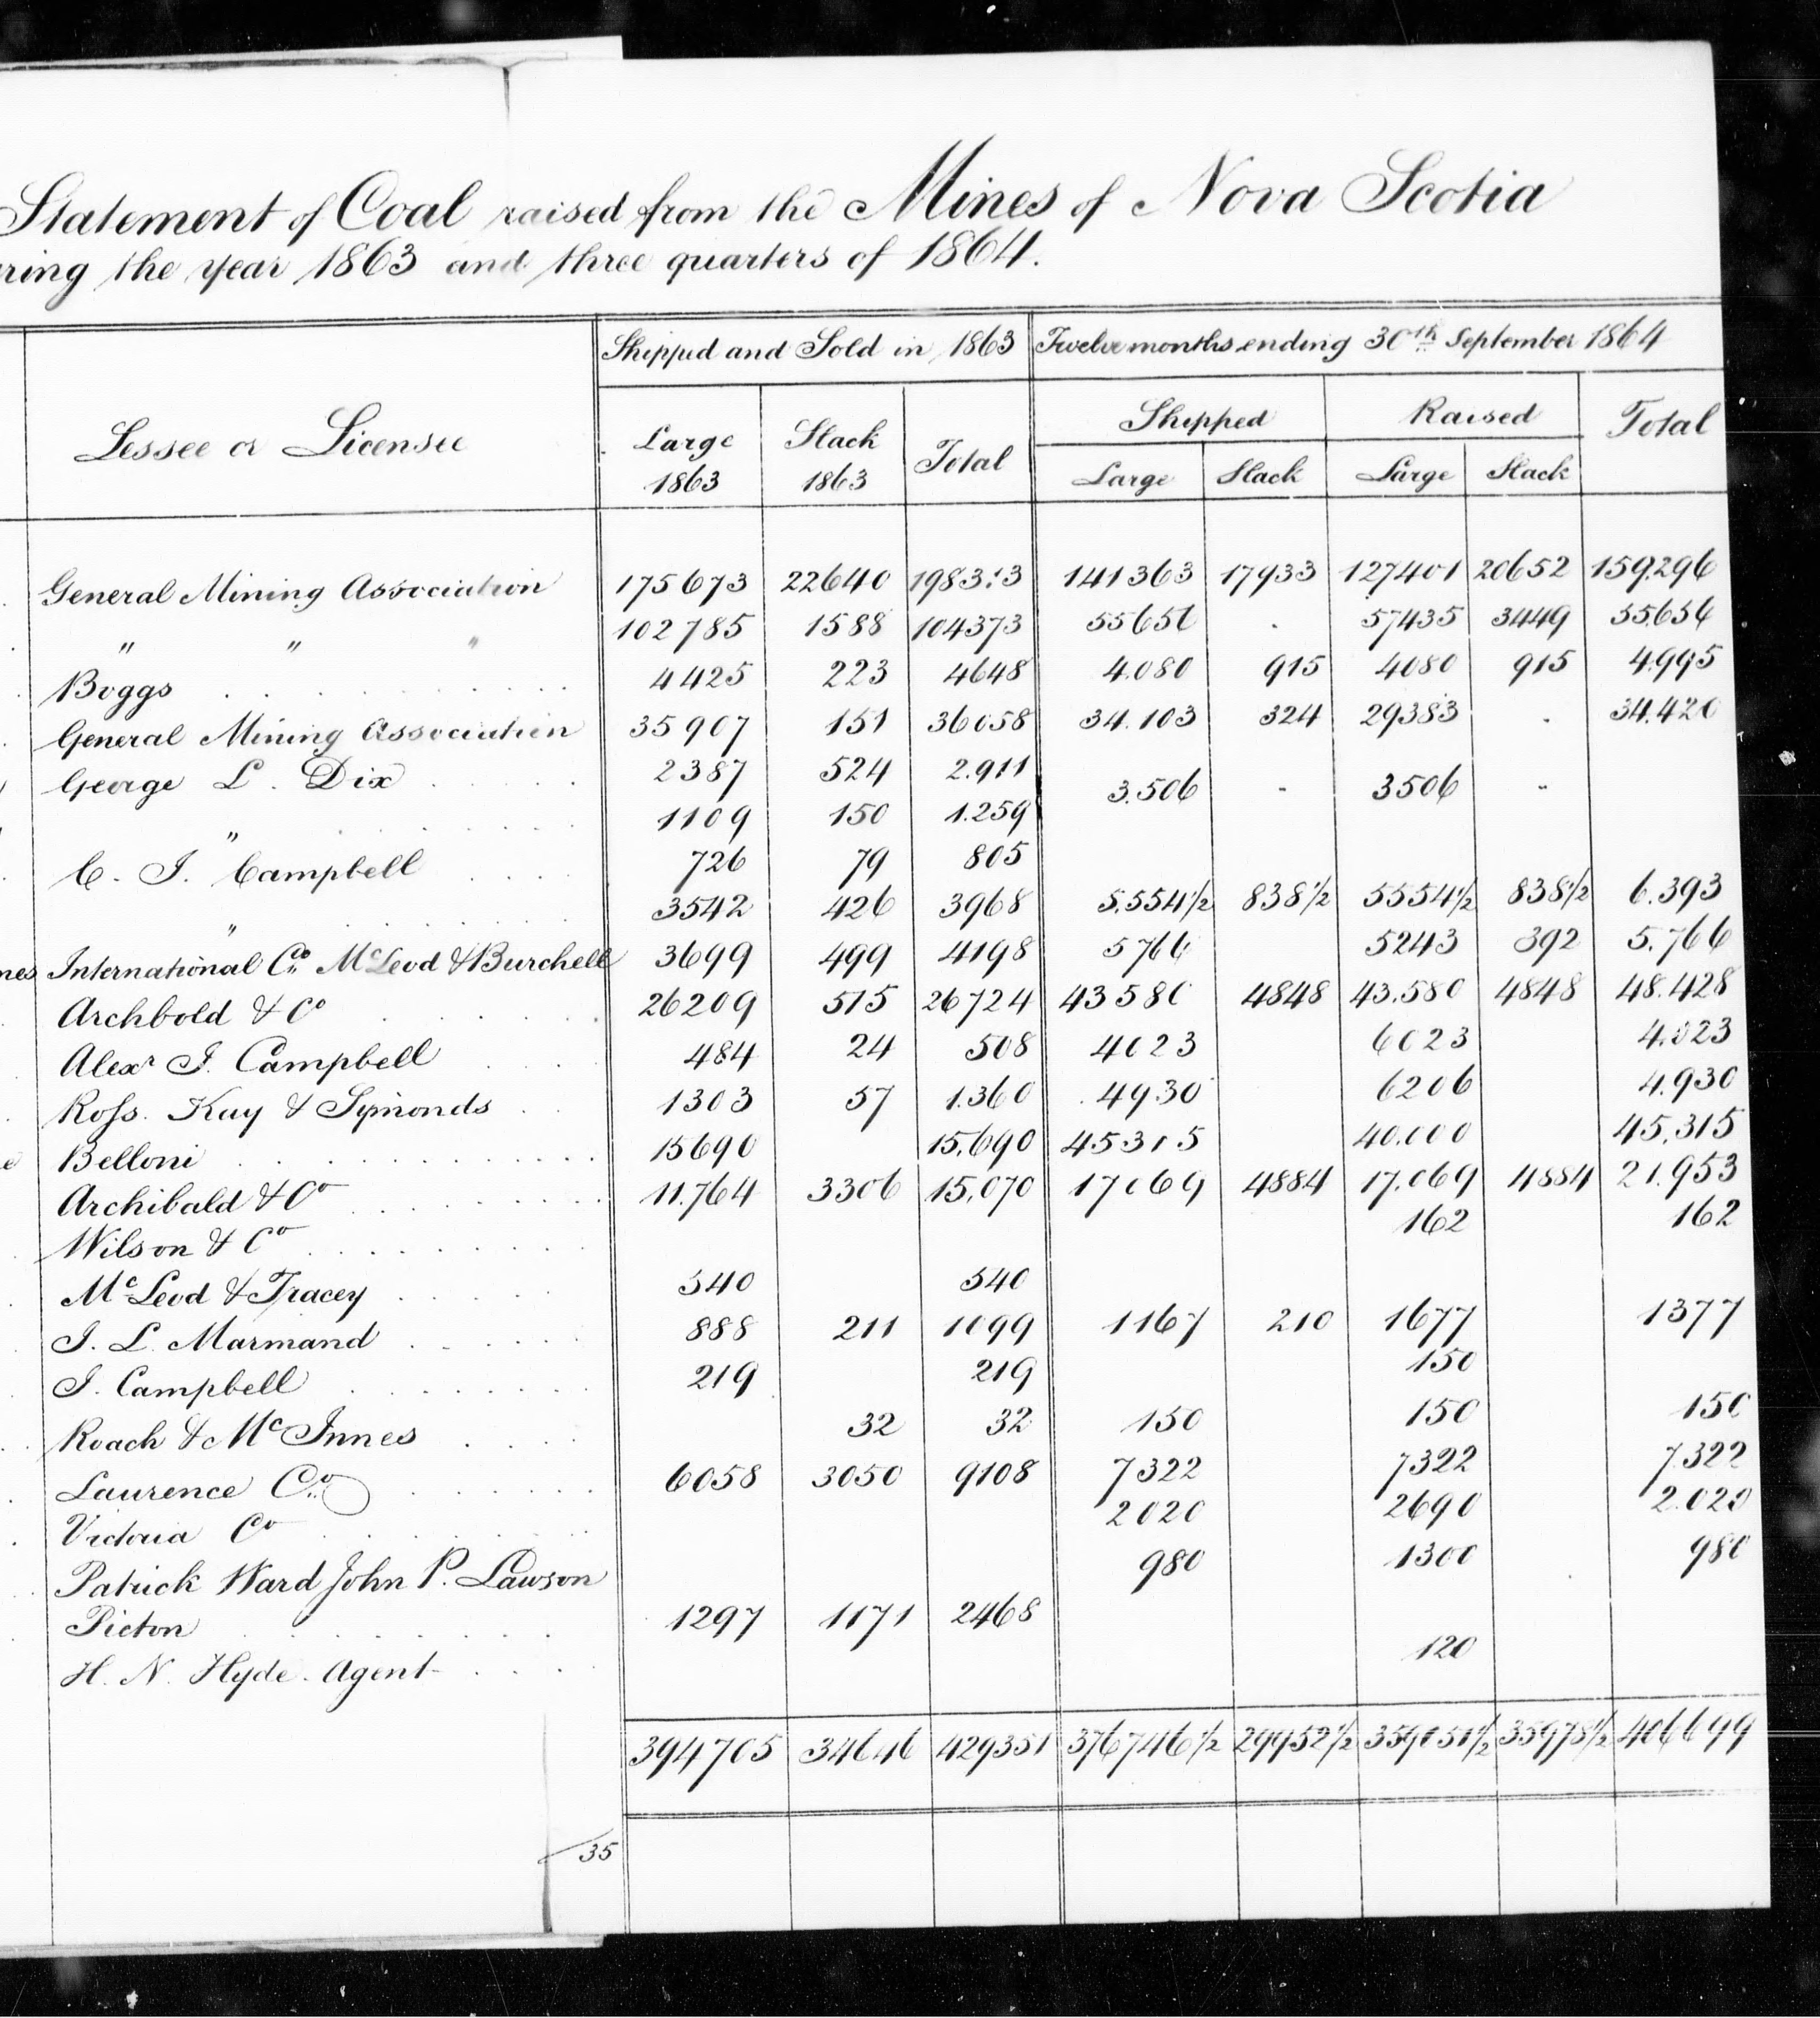 Statement of Coal raised from the Mines of Nova Scotia
ring the year 1863 and three quarters of 1864.
Lessee or Licensee Shipped and Sold in 1863 Twelve months ending 30th September 1864
Large 1863 Slack 1863 Total Shipped Raised Total
Large Slack Large Slack
General Mining Association 175673 22640 198313 141363 17933 127401 20652 159,296
" " " 102785 1588 104373 55656 . 57435 3449 55,656
Boggs 4425 223 4648 4.080 915 4080 915 4.995
General Mining Association 35907 151 36058 34.103 324 29383 . 34.420
George L. Dix 2387 524 2.911 3.506 - 3506 -
" 1109 150 1.259
C. J. Campbell 726 79 805
" 3542 426 3968 5.554½ 838½ 5554½ 838½ 6.393
nes International Co. McLeod & Burchell 3699 499 4198 5766 5243 392 5.766
Archbold & Co 26209 515 26724 43580 4848 43.580 4848 48.428
Alexr J. Campbell 484 24 508 4023 6023 4.023
Ross. Kay & Symonds 1303 57 1.360 4930 6206 4.930
e Belloni 15690 15,690 45315 40.000 45,315
Archibald & Co 11.764 3306 15,070 17069 4884 17.069 4884 21.953
Wilson & Co 162 162
McLeod & Tracey 540 540
J. L. Marmand 888 211 1099 1167 210 1677 1377
J. Campbell 219 219 150
Roach & McInnes 32 32 150 150 150
Laurence Co. 6058 3050 9108 7322 7322 7.322
Victoria Co 2020 2690 2.020
Patrick Ward John P. Lawson 980 1300 980
Picton 1297 1171 2468
H. N. Hyde. Agent 120
394705 34646 429351 376746½ 29952½ 359051½ 35978½ 406699
35